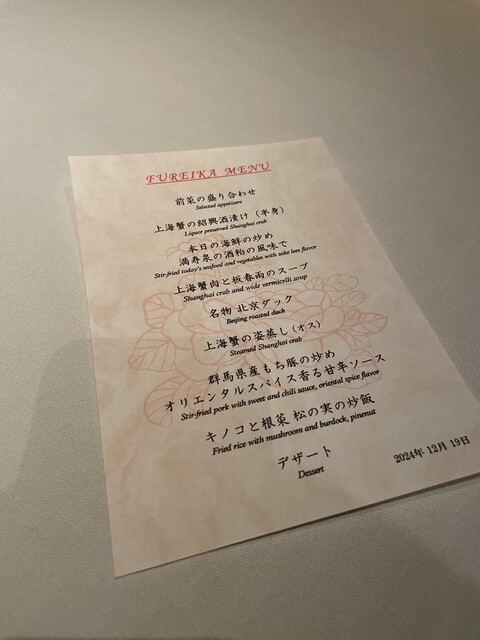 FUREIKA MENU
前菜の盛り合わせ
Selected appetizers
上海蟹の紹興酒漬け（半身）
Liquor preserved Shanghai crab
本日の海鮮の炒め
満寿泉の酒粕の風味で
Stir-fried today's seafood and vegetables with sake lees flavor
上海蟹肉と板春雨のスープ
Shanghai crab and wide vermicelli soup
名物 北京ダック
Beijing roasted duck
上海蟹の姿蒸し（オス）
Steamed Shanghai crab
群馬県産もち豚の炒め
オリエンタルスパイス香る甘辛ソース
Stir-fried pork with sweet and chili sauce, oriental spice flavor
キノコと根菜 松の実の炒飯
Fried rice with mushroom and burdock, pinenut
デザート
Dessert
2024年 12月 19日